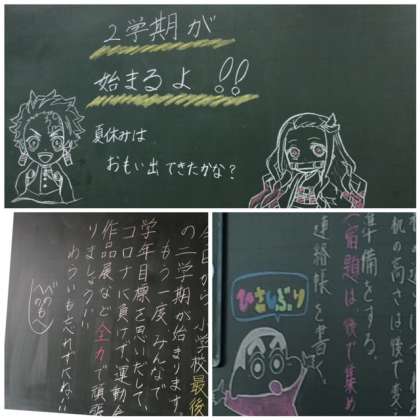 2学期が
始まるよ!!
夏休みは
おもい出できたかな?
今日から、小学校最後
の二学期が始まります。
もう一度、みんなで
学年目標を思いだして、
コロナに負けず運動会
作品展など全力で頑張
りましょう!!
わらいも忘れずにね!!
机の高さは後で変
準備をする。
宿題は後で集め
連絡帳を書
ひさしぶり